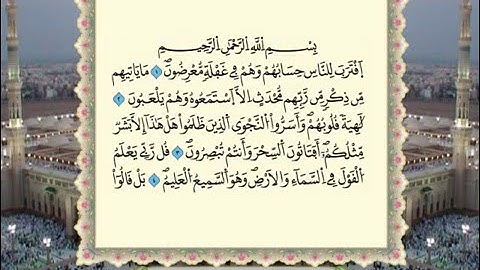 بِسْمِ اللَّهِ الرَّحْمَٰنِ الرَّحِيمِ
اقْتَرَبَ لِلنَّاسِ حِسَابُهُمْ وَهُمْ فِي غَفْلَةٍ مُّعْرِضُونَ ۝١ مَا يَأْتِيهِم
مِّن ذِكْرٍ مِّن رَّبِّهِم مُّحْدَثٍ إِلَّا اسْتَمَعُوهُ وَهُمْ يَلْعَبُونَ ۝٢
لَاهِيَةً قُلُوبُهُمْ وَأَسَرُّوا النَّجْوَى الَّذِينَ ظَلَمُوا هَلْ هَٰذَا إِلَّا بَشَرٌ
مِّثْلُكُمْ أَفَتَأْتُونَ السِّحْرَ وَأَنتُمْ تُبْصِرُونَ ۝٣ قُل رَّبِّي يَعْلَمُ
الْقَوْلَ فِي السَّمَاءِ وَالْأَرْضِ وَهُوَ السَّمِيعُ الْعَلِيمُ ۝٤ بَلْ قَالُوا